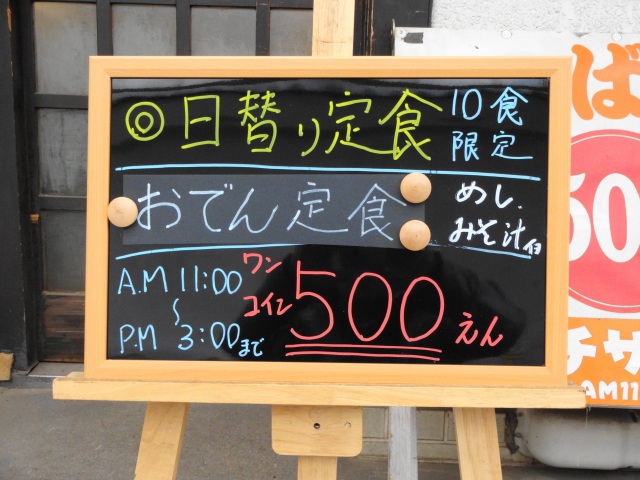 ◎日替り定食
10食
限定
おでん定食
めし、
みそ汁付
A.M 11:00
〜
P.M 3:00まで
ワン
コイン
500えん
ば
50
チサ
AM11